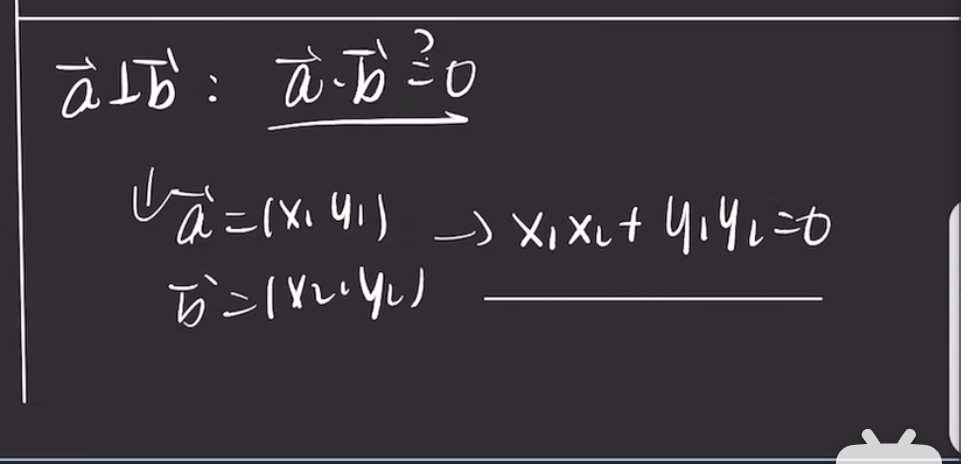 a⃗⊥b⃗: a⃗·b⃗ ?= 0
a⃗=(x₁ y₁) → x₁x₂+y₁y₂=0
b⃗=(x₂,y₂)